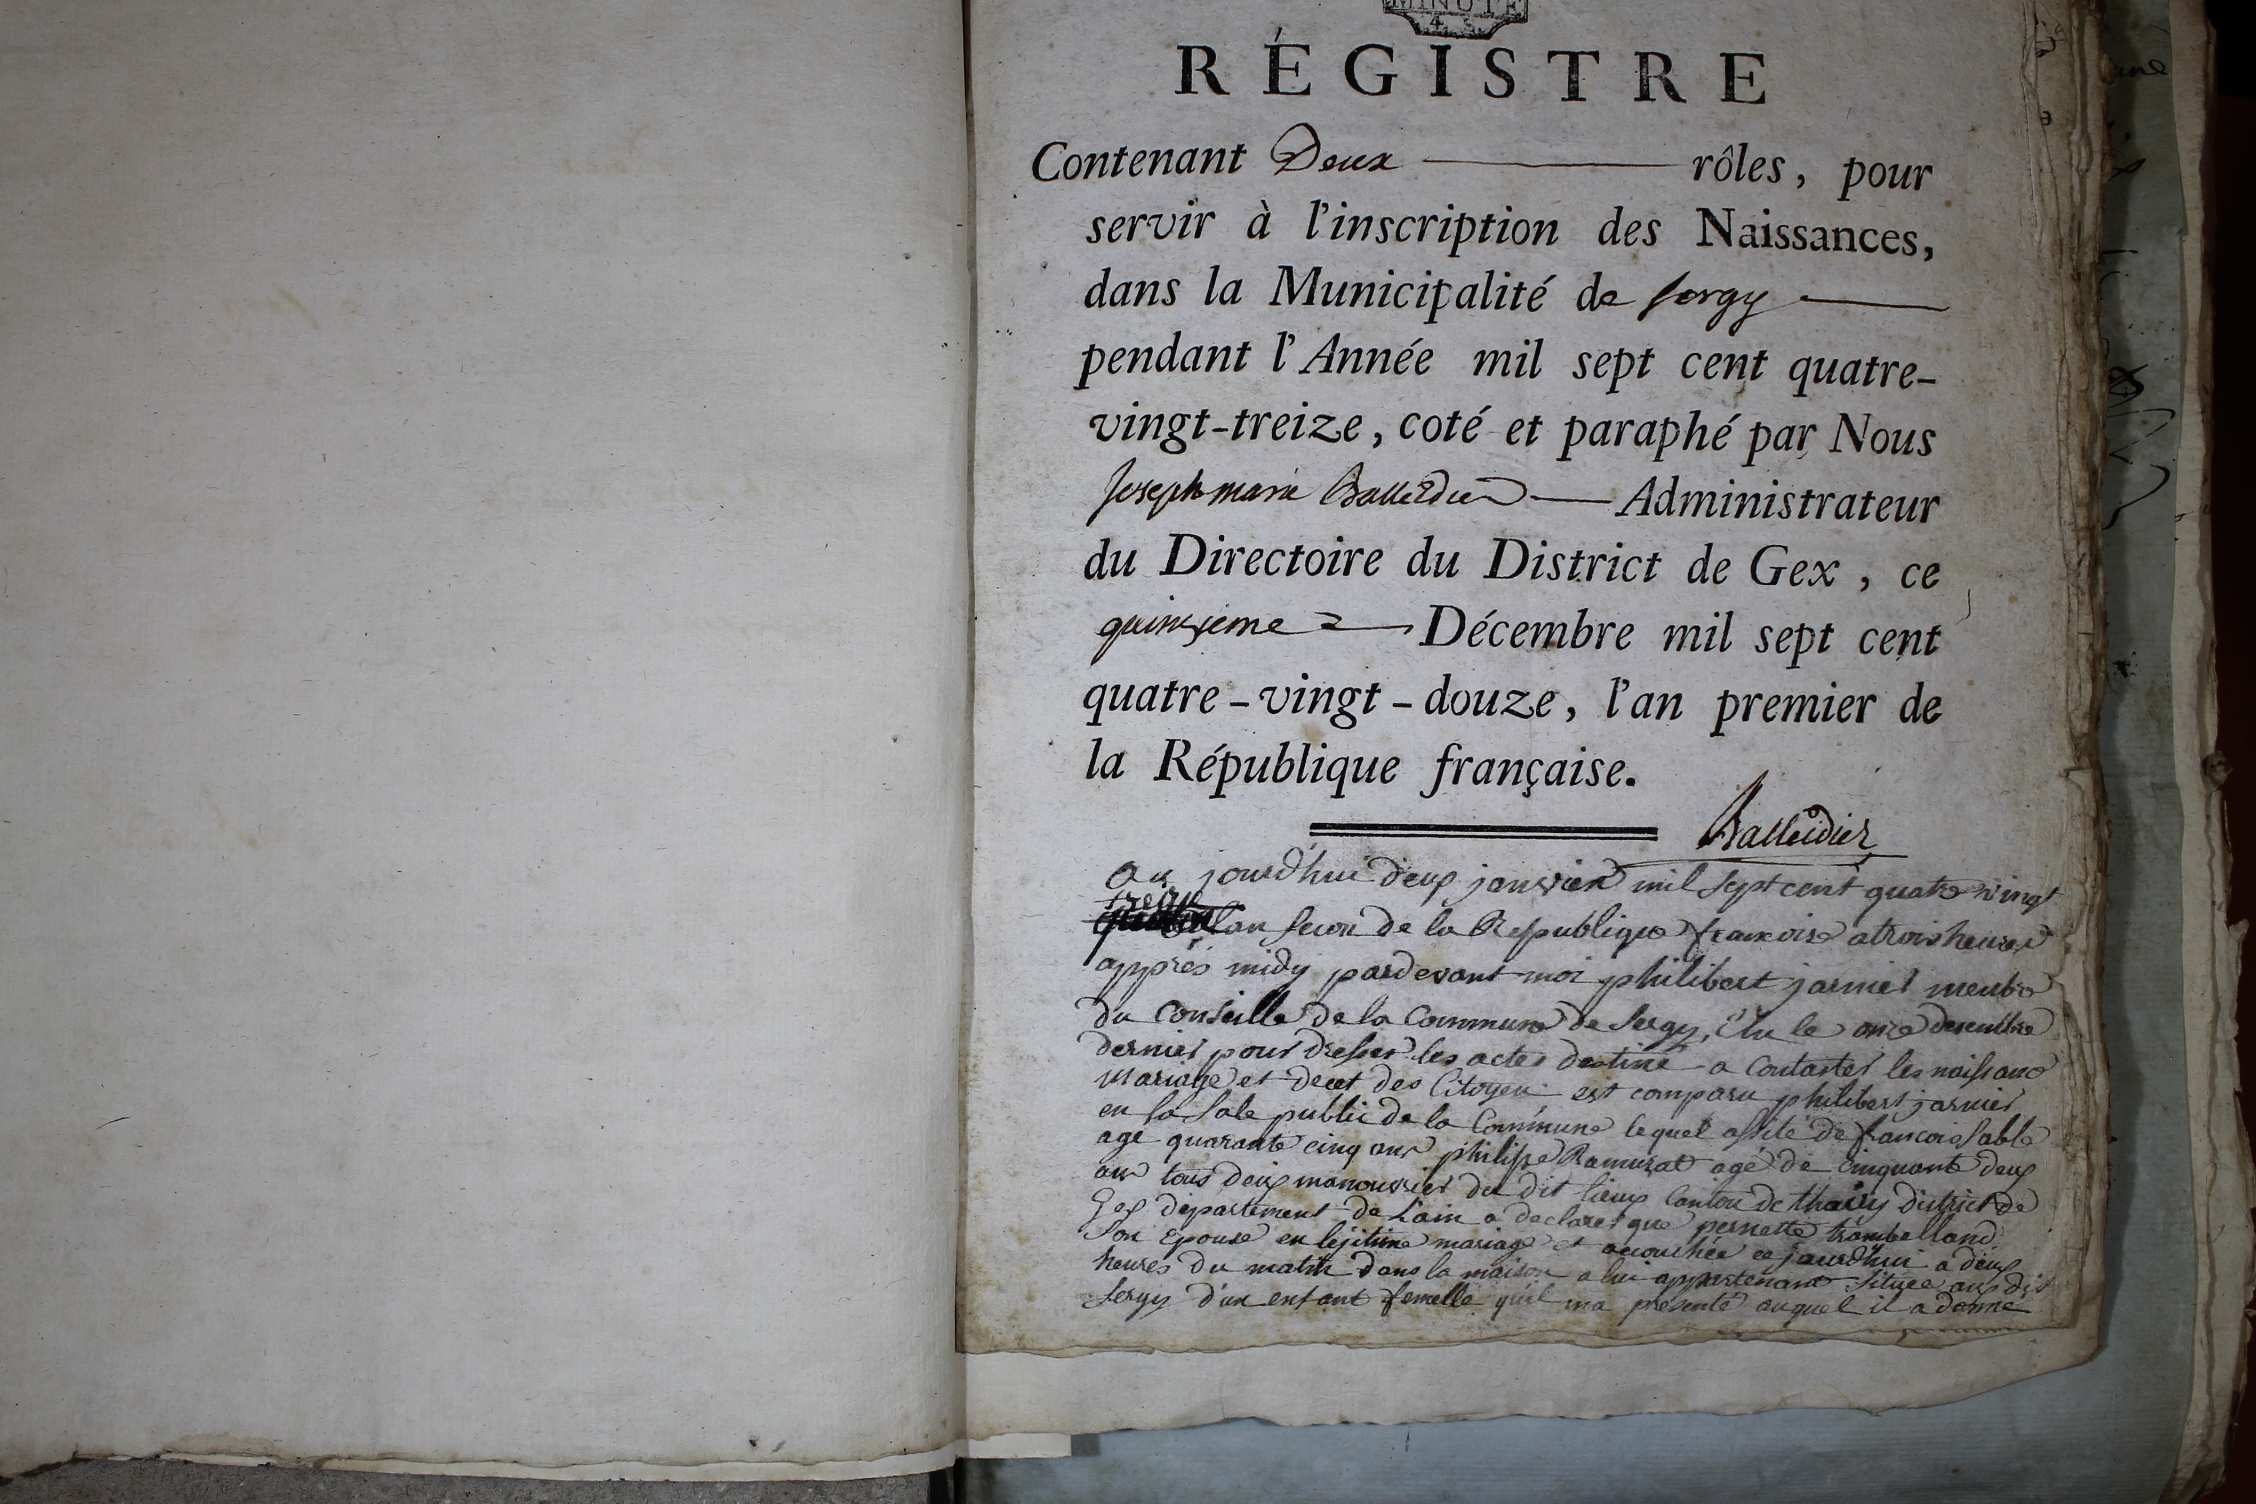 MINUTE
4. S.
RÉGISTRE
Contenant Deux rôles, pour
servir à l'inscription des Naissances,
dans la Municipalité de Sergy
pendant l'Année mil sept cent quatre-
vingt-treize, coté et paraphé par Nous
Joseph marie Balleidier Administrateur
du Directoire du District de Gex, ce
quinzieme Décembre mil sept cent
quatre-vingt-douze, l'an premier de
la République française.
Balleidier
Au jourd'hui deux janvier mil sept cent quatre vingt
treize
l'an secon de la Republique francoise a trois heures
apprés midy pardevant moi philibert jarnier menbre
du Conseille de la Commune de Sergy, Elu le onze desenbre
dernier pour dresser les actes destiné a Contaster les naissance
Mariage et decet des Citoyen est comparu philibert jarnier
en la Sale public de la Commune lequel assité de francois Sable
agé quarante cinq ans philippe Ramuzat agé de cinquante deux
ans tous deux manouvrier du dit lieux Canton de thoiry district de
Gex département de L'ain a declaret que pernette trambelland
Son Epouse en lejitime mariage et acouchée ce jourd'hui a deux
heures du matin dans la maison a lui appartenant Située aux dit
Sergy d'un enfant femelle qu'il ma présenté auquel il a donné